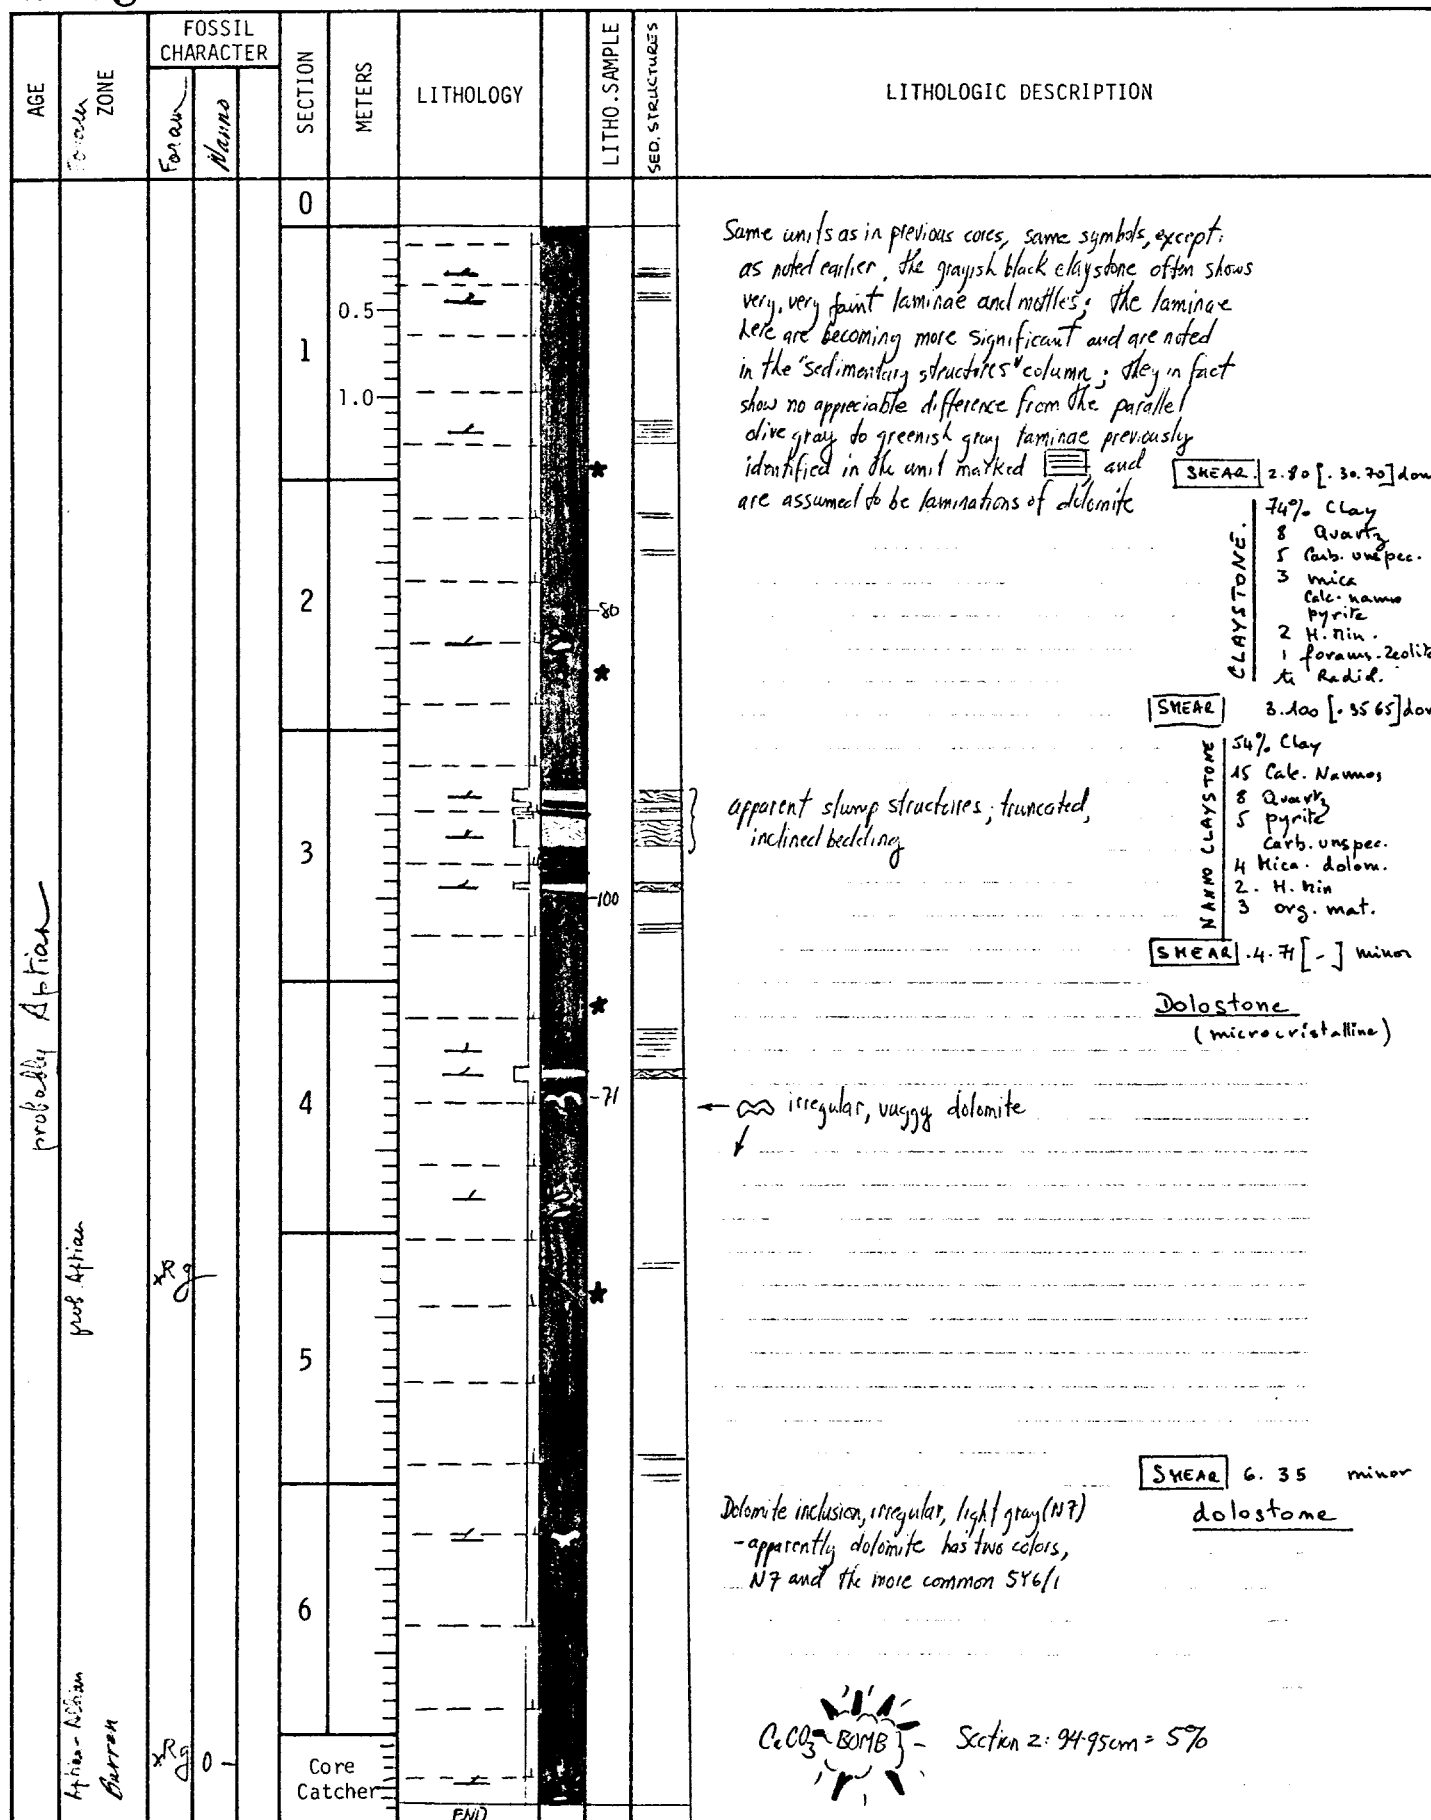 FOSSIL
CHARACTER
AGE
Foram
ZONE
Foram
Nanno
SECTION
METERS
LITHOLOGY
LITHO.SAMPLE
SED. STRUCTURES
LITHOLOGIC DESCRIPTION
0
0.5
1
1.0
2
80
3
100
4
71
5
6
Core
Catcher
END
probably Aptian
prob. Aptian
Aptian - Albian
Barren
xRg
xRg
0 -
Same units as in previous cores, same symbols, except:
as noted earlier, the grayish black claystone often shows
very, very faint laminae and mottles; the laminae
here are becoming more significant and are noted
in the "sedimentary structures" column; they in fact
show no appreciable difference from the parallel
olive gray to greenish gray laminae previously
identified in the unit marked and
are assumed to be laminations of dolomite
SMEAR. 2.80 [.30.70] dom
CLAYSTONE.
74% Clay
8 Quartz
5 Carb. unspec.
3 mica
Calc. nanno
pyrite
2 H. Min.
1 forams. Zeolite
tr Radiol.
SMEAR 3.100 [.35 65] dom
NANNO CLAYSTONE
54% Clay
15 Calc. Nannos
8 Quartz
5 pyrite
Carb. unspec.
4 Mica. dolom.
2. H. Min
3 org. mat.
apparent slump structures; truncated,
inclined bedding
SMEAR .4.71 [-] minor
Dolostone
(microcristalline)
irregular, vuggy dolomite
SMEAR 6. 35 minor
dolostone
Dolomite inclusion, irregular, light gray (N7)
- apparently dolomite has two colors,
N7 and the more common 5Y6/1
CaCO3 BOMB - Section 2: 94-95cm = 5%